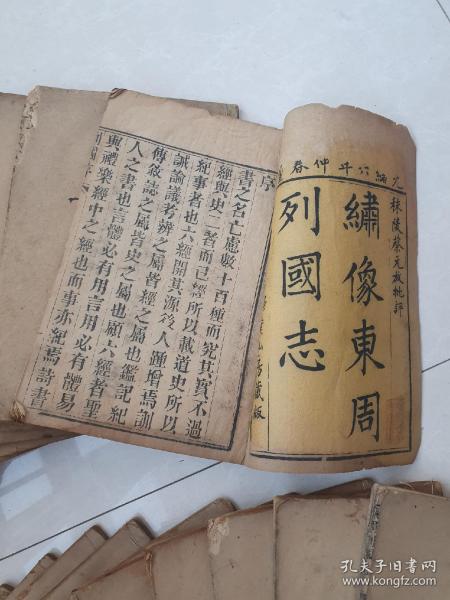 光緒六年仲春
秣陵蔡元放批評
繡像東周
列國志
房藏板
序
書之名亡慮數十百種而究其實不過
經與史二者而已經所以載道史所以
紀事者也六經開其源後人踵增焉訓
誡論議考辨之屬皆經之屬也鑑記紀
傳敘誌之屬皆史之屬也顧六經者聖
人之書也言體必有用言用必有體易
與禮樂經中之經也而事亦紀焉詩書
孔夫子旧书网
www.kongfz.com